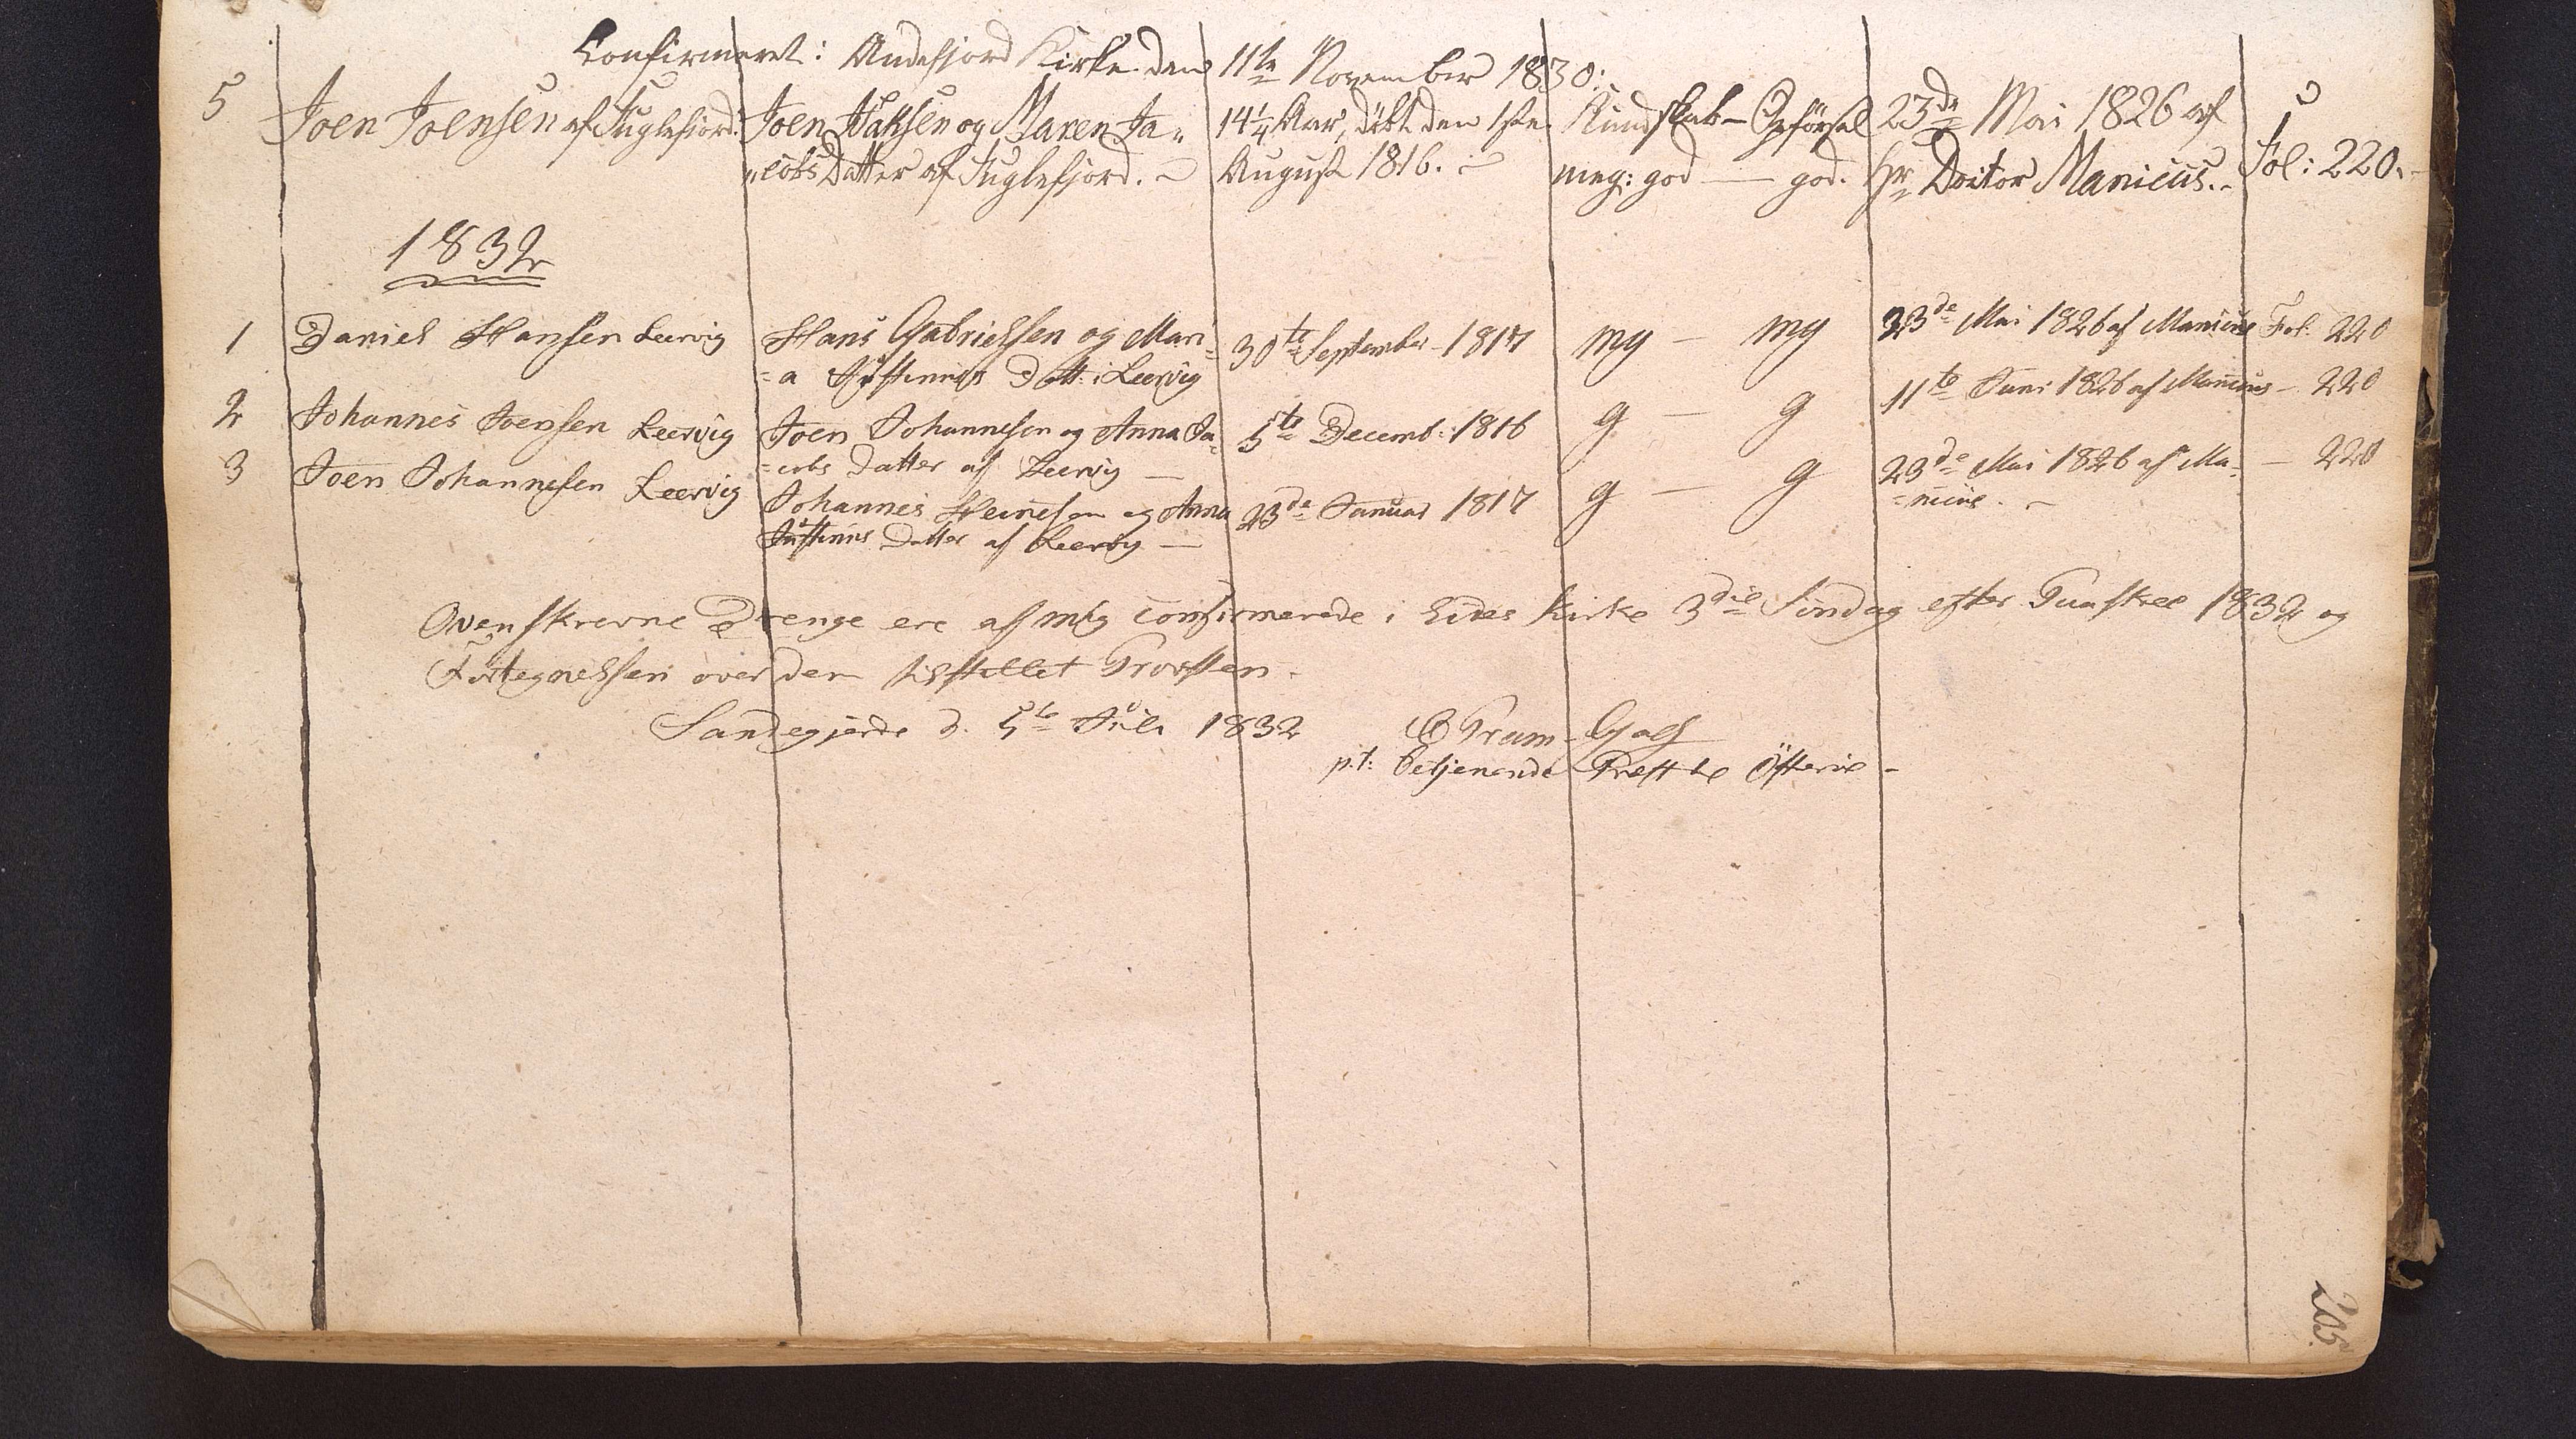 Confirmeret: Andefjord Kirke den 11te November 1830:
5 Joen Joensen af Fuglefjord: Joen Isaksen og Maren Ja„ 14¼ Aar, døbt den 1ste Kundskab — Opførsel 23de Mai 1826 af Fol: 220.
„cobs Datter af Fuglefjord. August 1816. meg: god — god. Hr Doctor Manicus.
1832
1 Daniel Hansen Leervig Hans Gabrielsen og Mari= 30te September 1817 mg — mg 23de Mai 1826 af Manicus Fol: 220
=a Justinus Datt: i Leervig
2 Johannes Joensen Leervig Joen Johannesen og Anna Ja= 5te Decemb: 1816 g — g 11te Juni 1826 af Manicus — 220
=cobs Datter af Leervig —
3 Joen Johannesen Leervig Johannes Heinesen og Anna 23de Januar 1817 g — g 23de Mai 1826 af Ma= — 220
Justinus Datter af Leervig — =nicus. —
Ovenskrevne Drenge ere af mig confirmerede i Eides Kirke 3die Søndag efter Paaske 1832 og
Fortegnelsen over dem tilstillet Provsten.
Sandegjerde d. 5te Juli 1832 C Pram Gad
p.t. betjenende Præst til Østerøe -
205